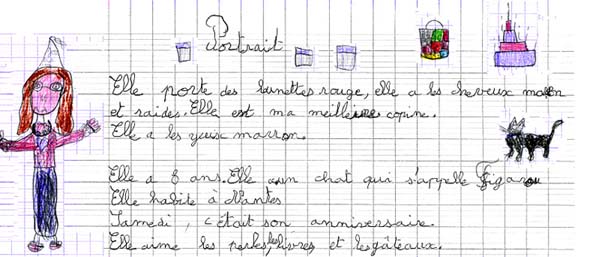 Portrait
Elle porte des lunettes rouge, elle a les cheveux marron
et raides. Elle est ma meilleure copine.
Elle a les yeux marron.
Elle a 8 ans. Elle a un chat qui s'appelle Figaro
Elle habite à Nantes
Samedi, c'était son anniversaire.
Elle aime les perles, les livres et les gâteaux.